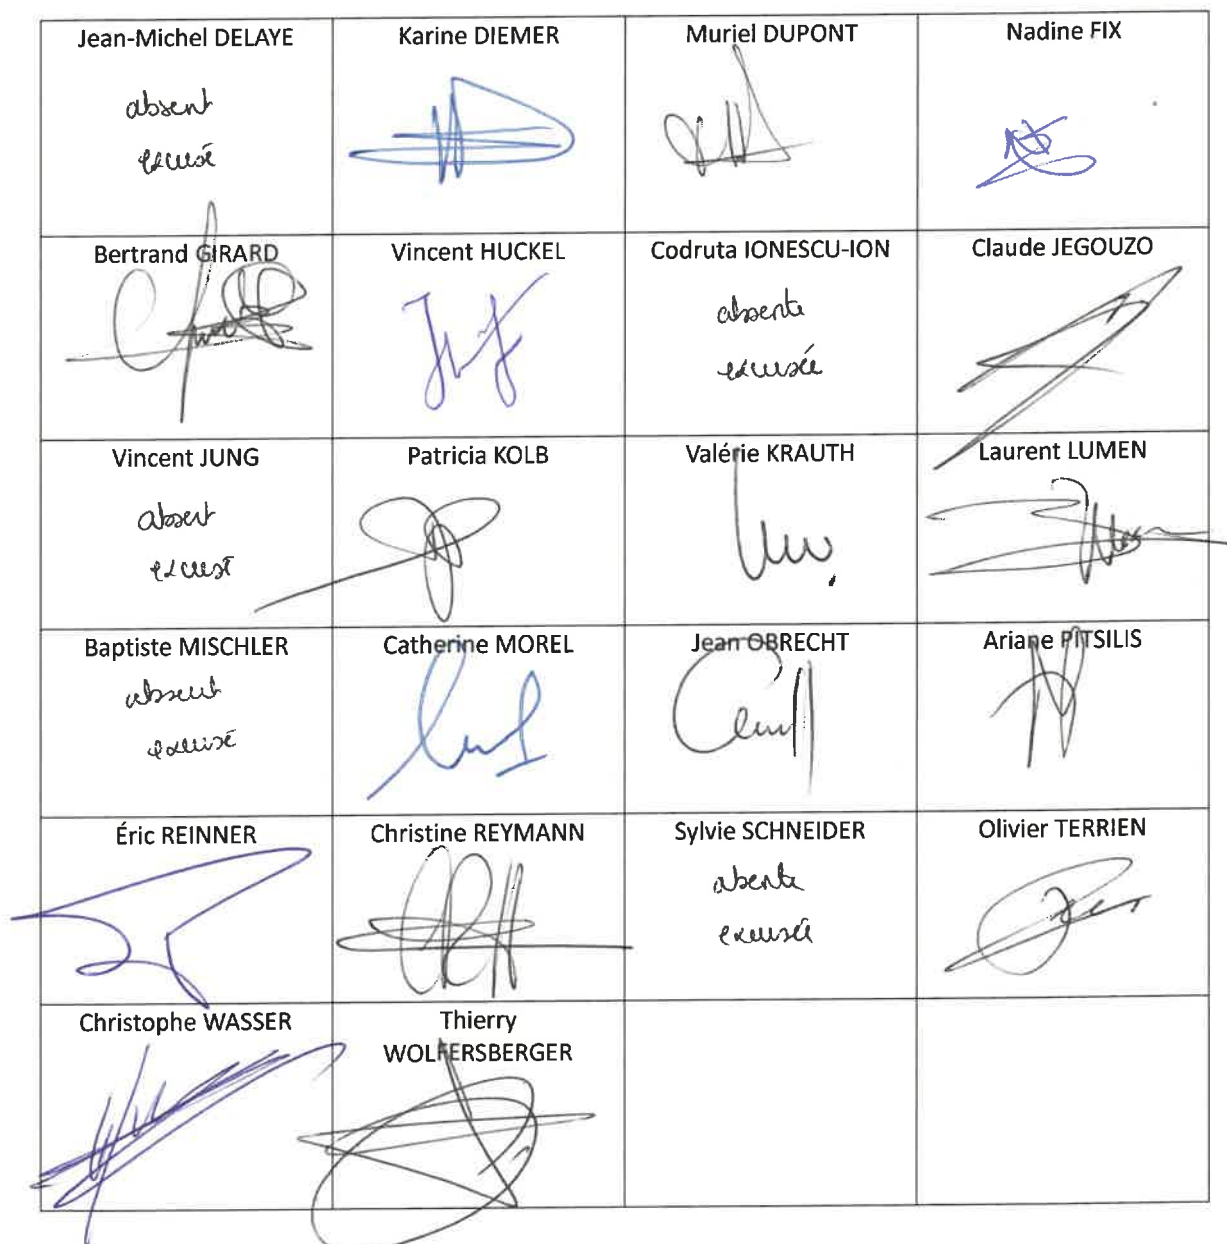 Jean-Michel DELAYE
absent
excusé
Karine DIEMER
Muriel DUPONT
Nadine FIX
Bertrand GIRARD
Vincent HUCKEL
Codruta IONESCU-ION
absente
excusée
Claude JEGOUZO
Vincent JUNG
absent
excusé
Patricia KOLB
Valérie KRAUTH
Laurent LUMEN
Baptiste MISCHLER
absent
excusé
Catherine MOREL
Jean OBRECHT
Ariane PITSILIS
Éric REINNER
Christine REYMANN
Sylvie SCHNEIDER
absente
excusée
Olivier TERRIEN
Christophe WASSER
Thierry
WOLFERSBERGER